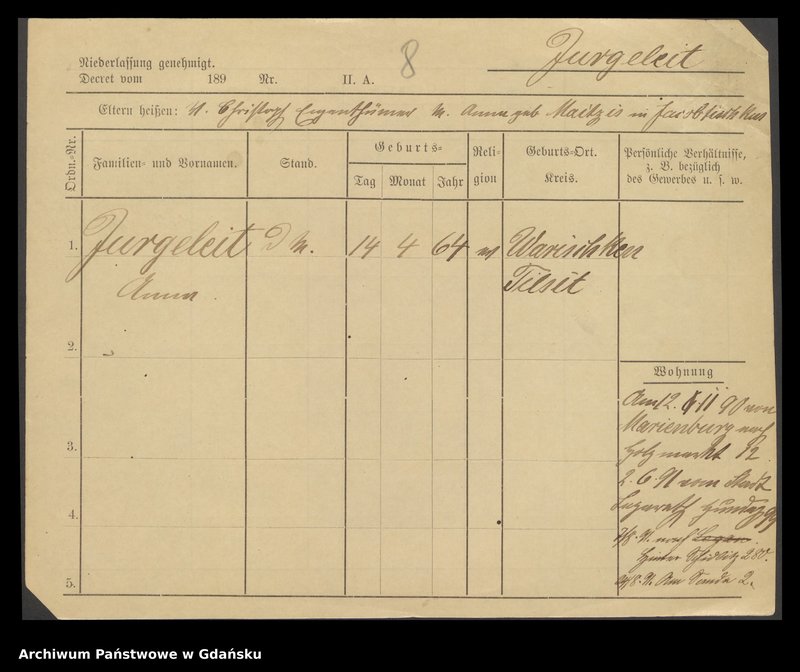 8
Jurgeleit
Niederlassung genehmigt.
Decret vom 189 Nr. II. A.
Eltern heißen: V. Christoph Eigenthümer M. Anna geb Maitzis in
Ordn.-Nr.
Familien- und Vornamen.
Stand.
Geburts-
Tag Monat Jahr
Reli-
gion
Geburts-Ort.
Kreis.
Persönliche Verhältnisse,
z. B. bezüglich
des Gewerbes u. s. w.
1. Jurgeleit D M. 14 4 64 ev Warischken
Anna Tilsit
2.
3.
4.
5.
Wohnung
Am 12. 11 90 von
Marienburg nach
Holzmarkt 12
2. 6. 91 vom Stadt
Lazareth
nach
Hinter Schidlitz 280.
Am Sande 2.
Archiwum Państwowe w Gdańsku